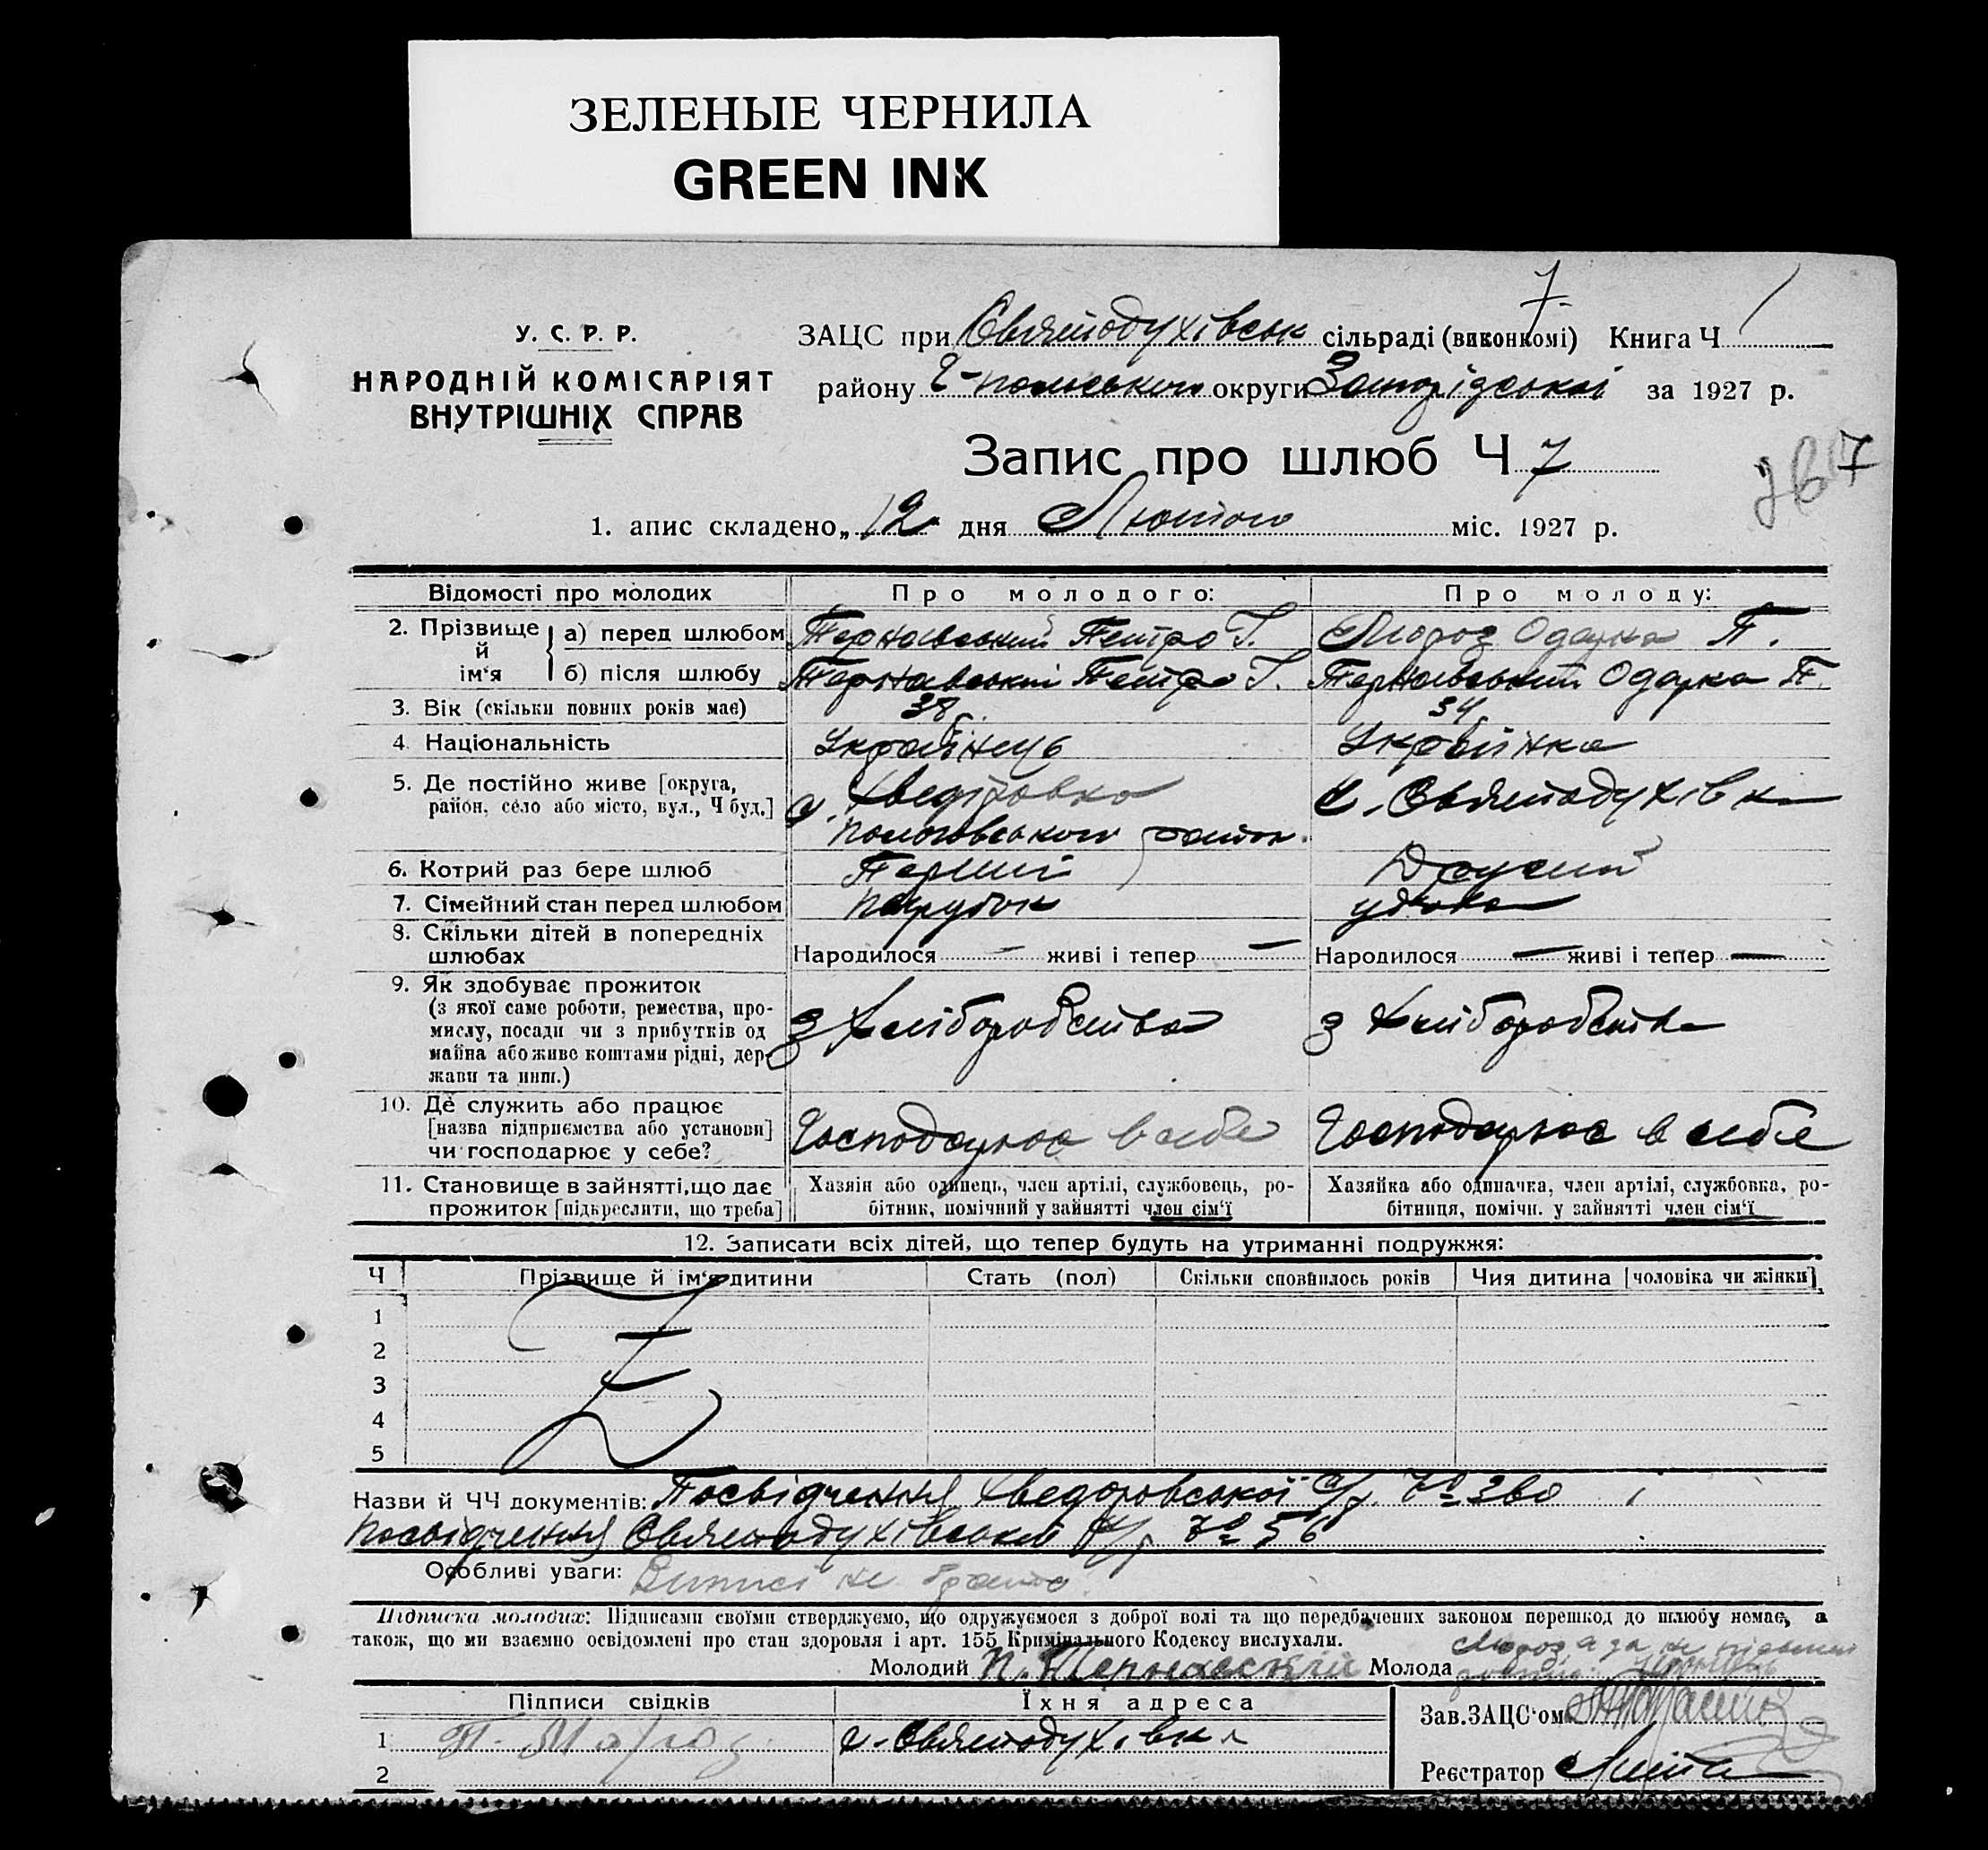 ЗЕЛЕНЫЕ ЧЕРНИЛА
GREEN INK
7
У. С. Р. Р.
НАРОДНІЙ КОМІСАРІЯТ
ВНУТРІШНІХ СПРАВ
ЗАЦС при Святодухівськ сільраді (виконкомі) Книга Ч 1
району округи Запорізської за 1927 р.
Запис про шлюб Ч 7
7
1. апис складено „12" дня Лютого міс. 1927 р.
Відомості про молодих Про молодого: Про молоду:
2. Прізвище й ім'я а) перед шлюбом Тернавський Петро Г. Мороз Одарка П.
б) після шлюбу Тернавський Петро Г. Тернавський Одарка П.
3. Вік (скільки повних років має) 38 34
4. Національність Українець Українка
5. Де постійно живе [округа, район, село або місто, вул., Ч буд.] с. Хведорівка Пологовського район. с. Святодухівка
6. Котрий раз бере шлюб Перший Другий
7. Сімейний стан перед шлюбом парубок удова
8. Скільки дітей в попередніх шлюбах Народилося — живі і тепер — Народилося — живі і тепер —
9. Як здобуває прожиток
(з якої саме роботи, ремества, про-
мислу, посади чи з прибутків од
майна або живе коштами рідні, дер-
жави та инш.) з Хліборобства з Хліборобства
10. Де служить або працює
[назва підприємства або установи]
чи господарює у себе? Господарює в себе Господарює в себе
11. Становище в зайнятті, що дає
прожиток [підкреслити, що треба] Хазяїн або одинець, член артілі, службовець, ро-
бітник, помічний у зайнятті член сім'ї Хазяйка або одиначка, член артілі, службовка, ро-
бітниця, помічн. у зайнятті член сім'ї
12. Записати всіх дітей, що тепер будуть на утриманні подружжя:
Ч Прізвище й ім'я дитини Стать (пол) Скільки сповнилось років Чия дитина [чоловіка чи жінки]
1
2
3
4
5
Назви й ЧЧ документів: Посвідчення Хведоровської с/р. № 380
посвідчення Святодухівської с/р № 56
Особливі уваги:
Підписка молодих: Підписами своїми стверджуємо, що одружуємося з доброї волі та що передбачених законом перешкод до шлюбу немає, а
також, що ми взаємно освідомлені про стан здоровля і арт. 155 Кримінального Кодексу вислухали.
Молодий П. Тернавский Молода
Підписи свідків Їхня адреса
Зав.ЗАЦС'ом
1 П. Мороз с. Святодухівка
2
Реєстратор